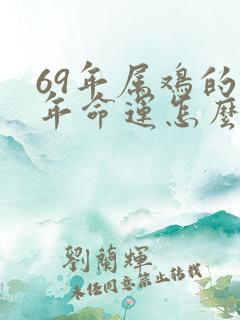 69年属鸡的
年命运怎麼
劉蘭輝
未经同意禁止转载